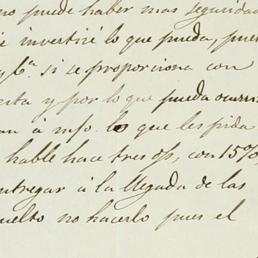 no puede haber mas seguridad
invertiré lo que pueda, pues
y Ca. si se proporciona con
y por lo que pueda ocurrir
á mfo. lo que les pida
hable hace tres ops, con 15%
entregar á la llegada de las
no hacerlo pues el